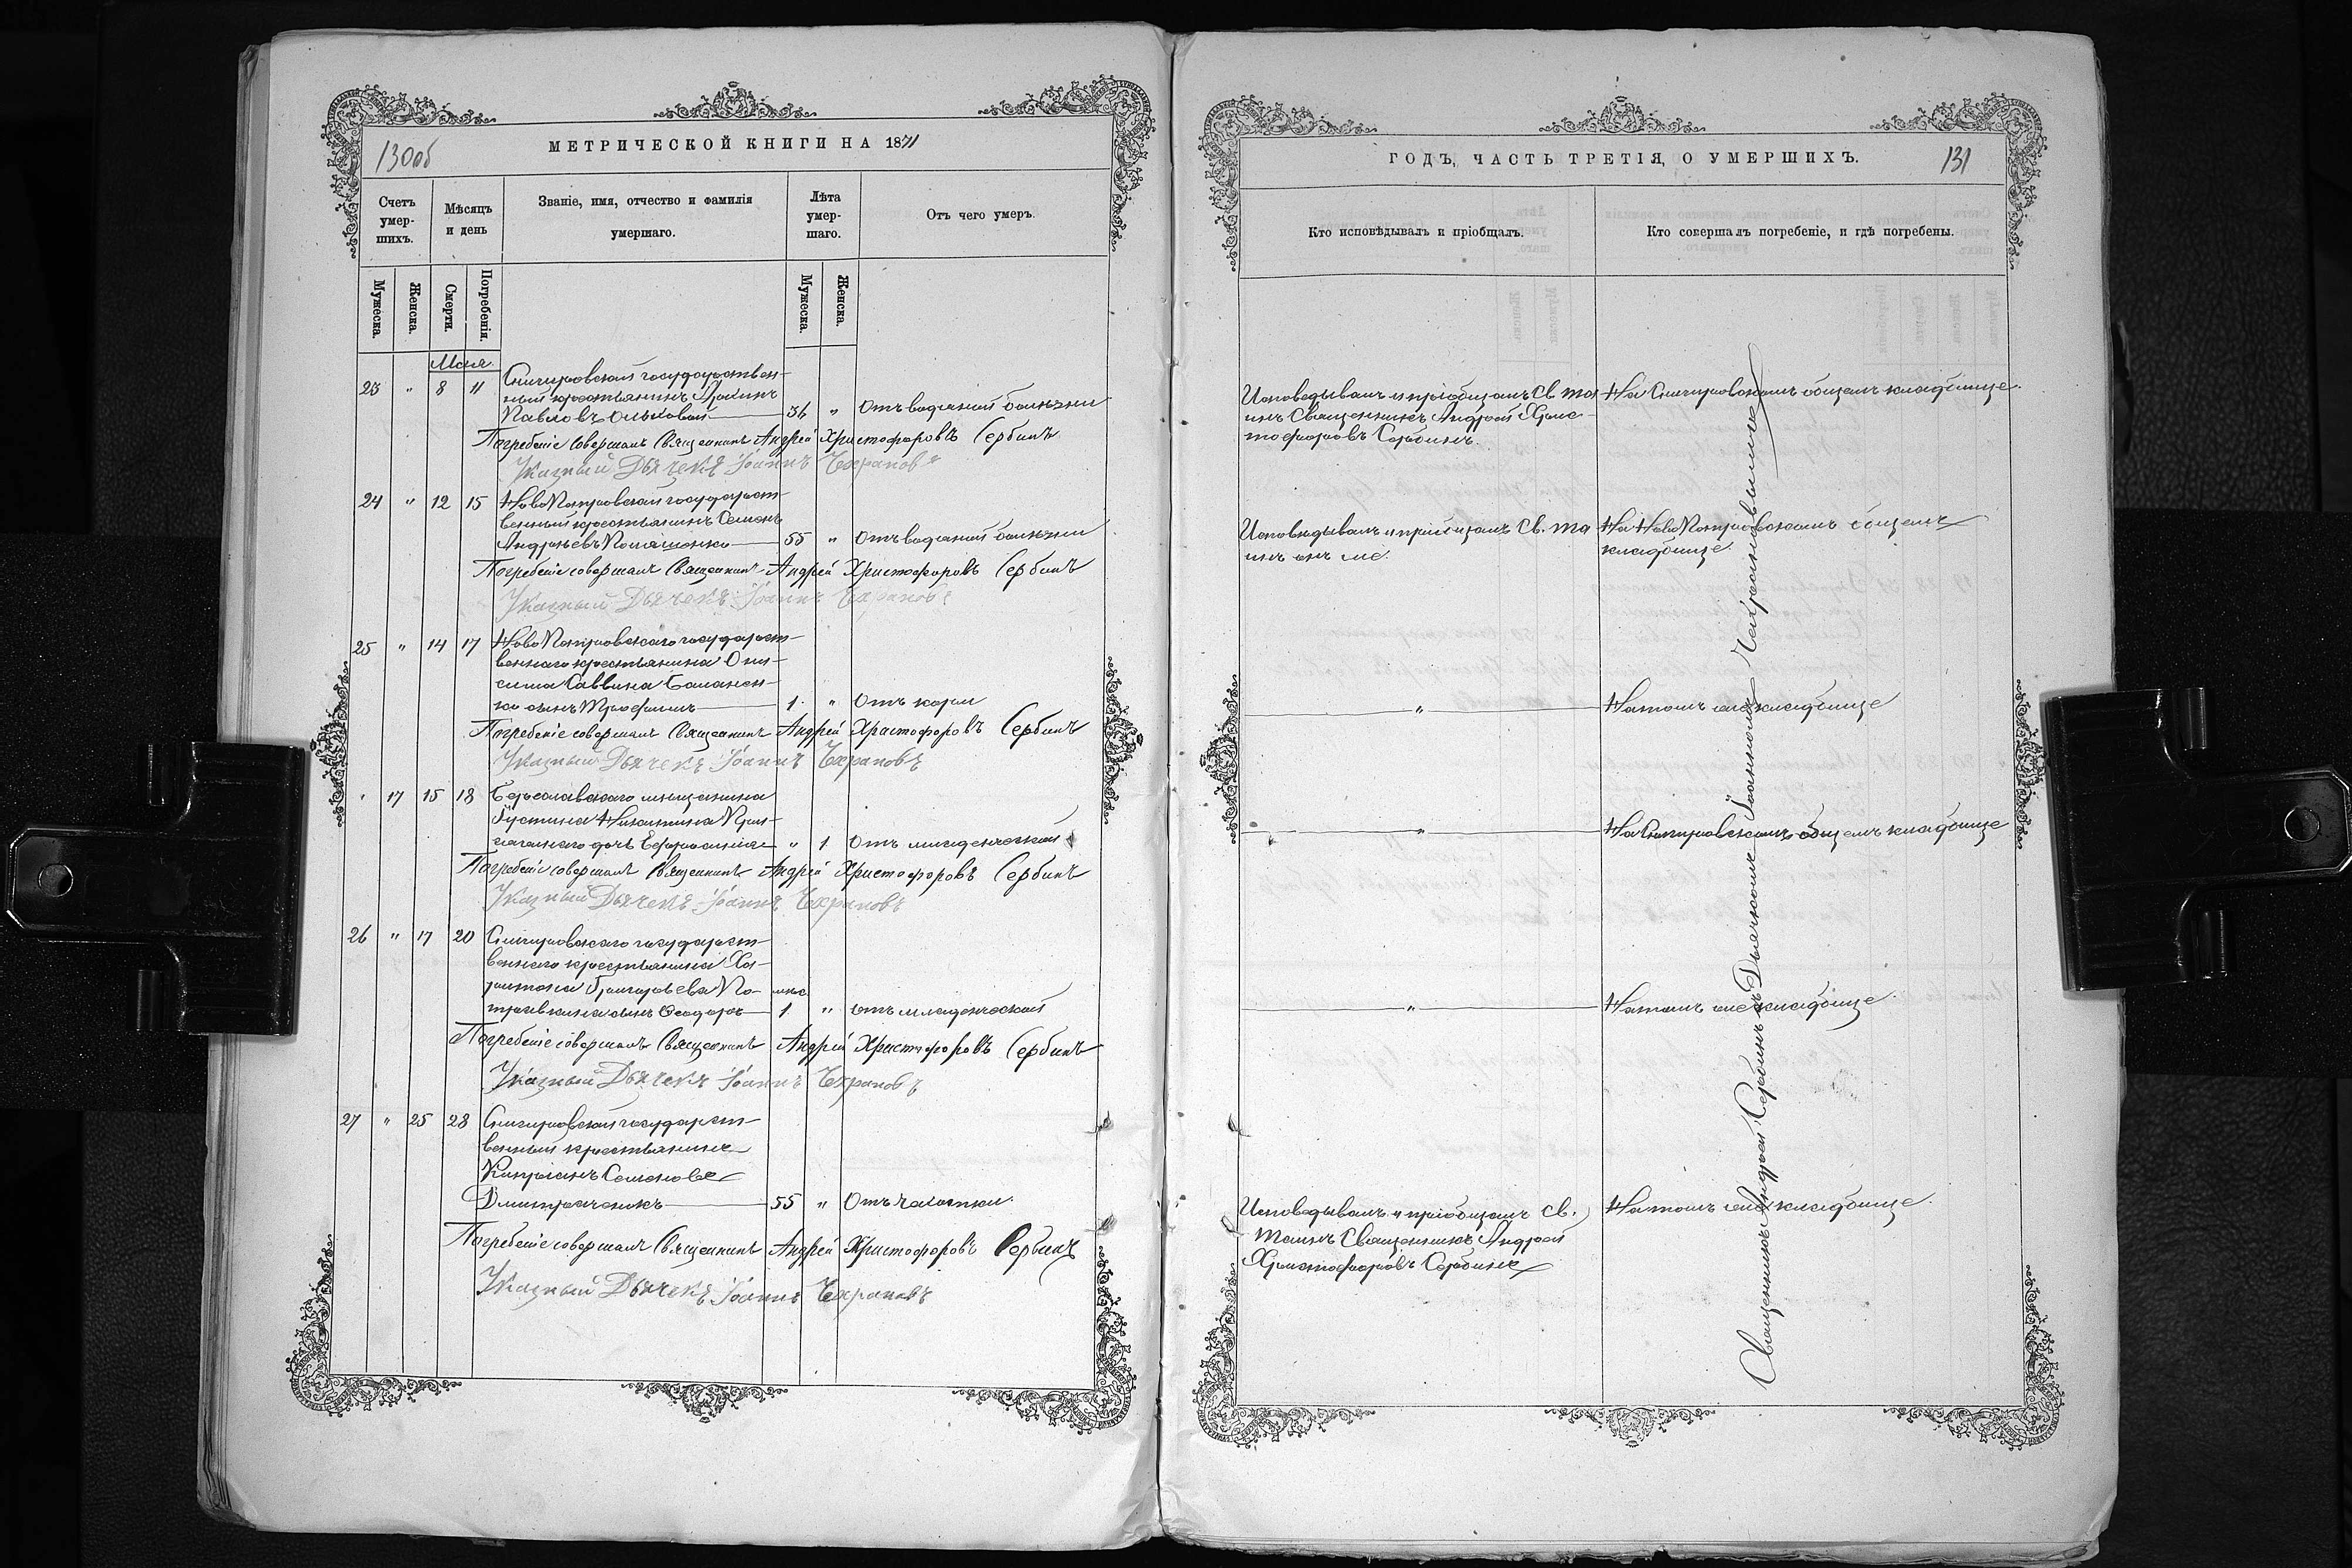 130об
МЕТРИЧЕСКОЙ КНИГИ НА 1871
Счетъ умер-шихъ.
Мѣсяцъ и день
Званіе, имя, отчество и фамилія умершаго.
Лѣта умер-шаго.
Отъ чего умеръ.
Мужеска.
Женска.
Смерти.
Погребенія.
Мужеска.
Женска.
Мая
Снигировскій государствен-
23 " 8 11 ный крестьянинъ
Павловъ 56 " Отъ водяной болѣзни
Погребеніе совершалъ Священникъ Андрей Христофоровъ Сербинъ
Указный Дьячекъ Іоаннъ Чехрановъ
24 " 12 15 Новопетровскій государст-
венный крестьянинъ Семенъ
Андреевъ 55 " Отъ водяной болѣзни
Погребеніе совершалъ Священникъ Андрей Христофоровъ Сербинъ
Указный Дьячекъ Іоаннъ Чехрановъ
25 " 14 17 Новопетровскаго государст-
веннаго крестьянина Они-
сима Саввина Баланен-
ко сынъ Трофимъ 1 " Отъ кори
Погребеніе совершалъ Священникъ Андрей Христофоровъ Сербинъ
Указный Дьячекъ Іоаннъ Чехрановъ
" 17 15 18 Бериславскаго мѣщанина
Іустина Никитина
дочь Ефросинія " 1 Отъ младенческой
Погребеніе совершалъ Священникъ Андрей Христофоровъ Сербинъ
Указный Дьячекъ Іоаннъ Чехрановъ
26 " 17 20 Снигировскаго государст-
веннаго крестьянина Ха-
ритона Григорьева По- мѣс.
сынъ Феодоръ 1 " отъ младенческой
Погребеніе совершалъ Священникъ Андрей Христофоровъ Сербинъ
Указный Дьячекъ Іоаннъ Чехрановъ
27 " 25 28 Снигировскій государст-
венный крестьянинъ
Кипріанъ Семеновъ
Дмитраченокъ 55 " Отъ чахотки
Погребеніе совершалъ Священникъ Андрей Христофоровъ Сербинъ
Указный Дьячекъ Іоаннъ Чехрановъ
ГОДЪ, ЧАСТЬ ТРЕТІЯ, О УМЕРШИХЪ.
131
Кто исповѣдывалъ и пріобщалъ.
Кто совершалъ погребеніе, и гдѣ погребены.
Исповедывалъ и пріобщалъ Св. та На Снигировскомъ общемъ кладбище.
инъ Священникъ Андрей Хрис-
тофоровъ Сербинъ.
Исповѣдывалъ и пріобщалъ Св. та На Новопетровскомъ общемъ
инъ онъ же. кладбище.
" На томъ же кладбище
" На Снигировскомъ общемъ кладбище
" На томъ же кладбище.
Исповедывалъ и пріобщалъ Св. На томъ же кладбище.
Таинъ Священникъ Андрей
Христофоровъ Сербинъ
Священникъ Андрей Сербинъ съ Дьячкомъ Іоанномъ Чехрановымъ